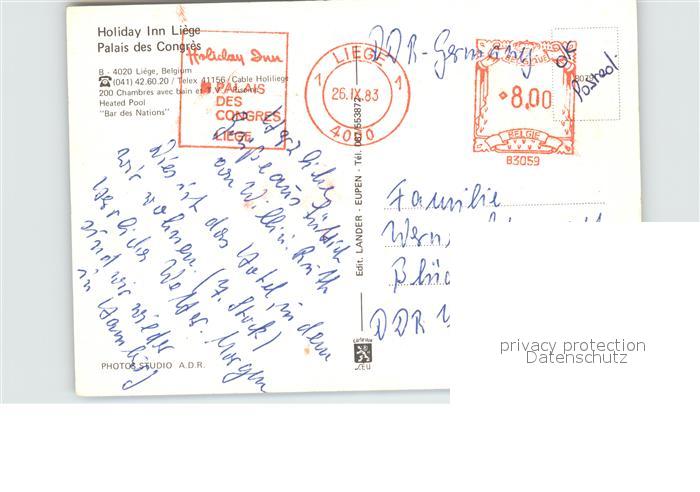 Holiday Inn Liège
Palais des Congrès
B - 4020 Liége, Belgium
☎ (041) 42.60.20 / Telex 41156 / Cable Holiliege
200 Chambres avec bain et T.V.
Heated Pool
"Bar des Nations"
Holiday Inn
PALAIS
DES
CONGRES
LIEGE
1 LIEGE 1
26.IX.83
4020
DDR-Germany
BELGIQUE
8,00
BELGIE
B3059
Herzliche
Grüße aus Lüttich
von Willi u. Ruth
Dies ist das Hotel, in dem
wir wohnen. (7. Stock)
Herrliches Wetter. Morgen
sind wir wieder
in Hamburg
Edit. LANDER - EUPEN - Tél. 087/553872
Familie
Wern
Blüc
DDR
PHOTOSTUDIO A.D.R.
CEU
privacy protection
Datenschutz